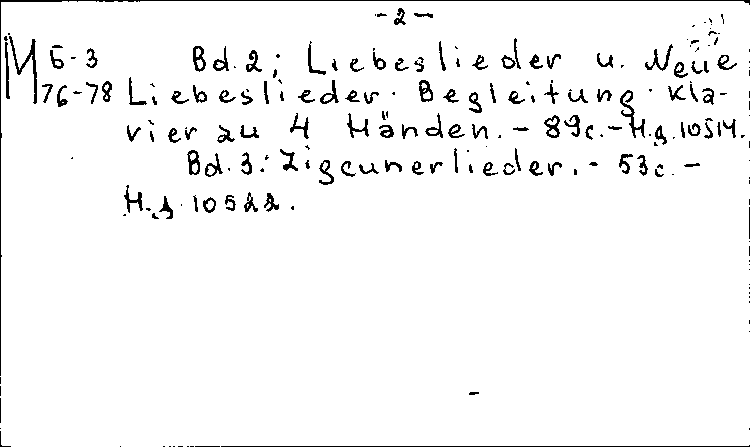 -2-
М Б-3 Bd. 2; Liebeslieder u. Neue
76-78 Liebeslieder. Begleitung. Kla-
vier zu 4 Händen. - 89c. - Н.д. 10514.
Bd. 3: Zigeunerlieder. - 53c. -
Н.д. 10522.